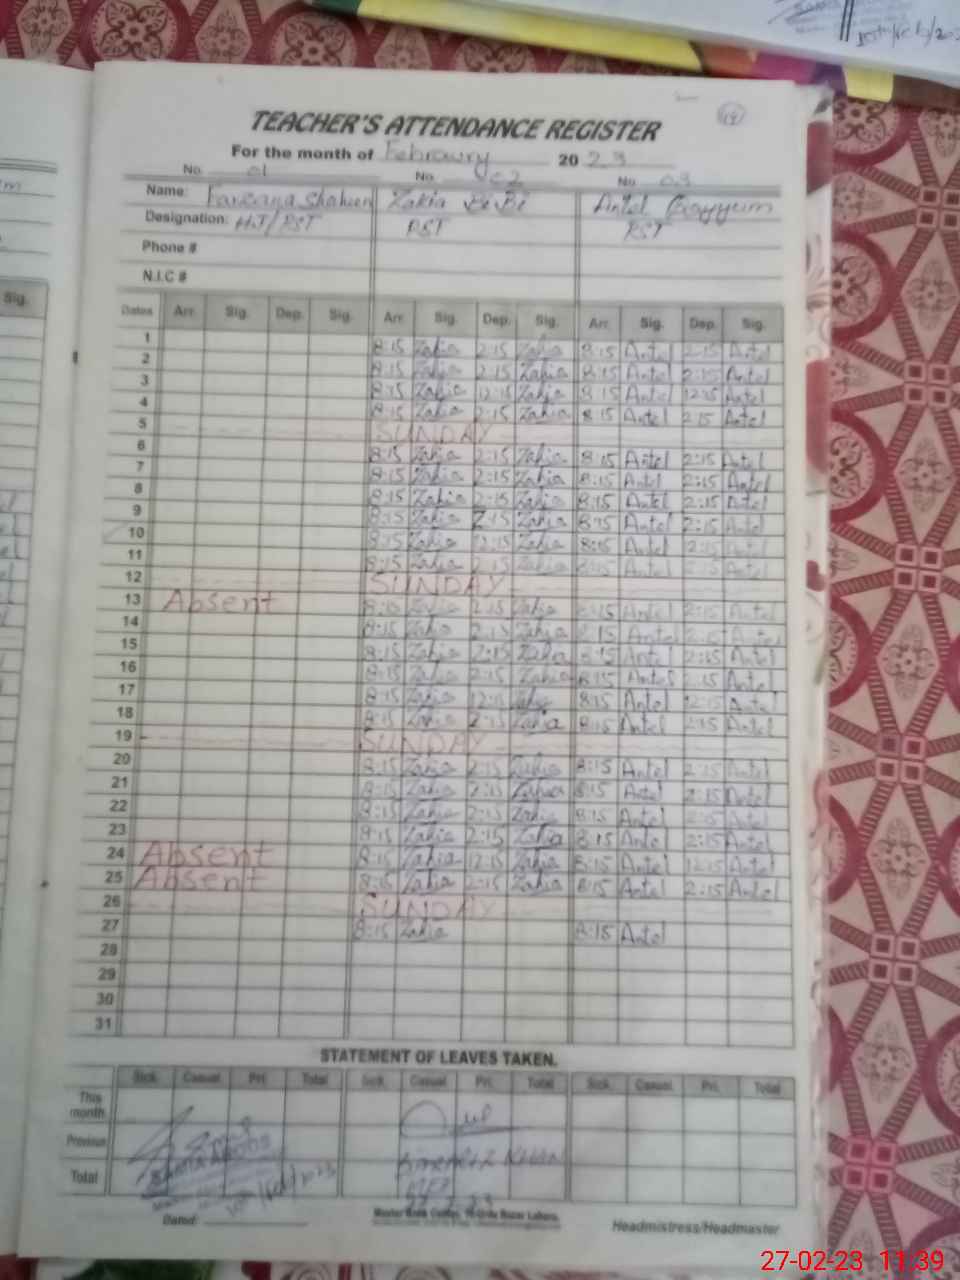 TEACHER'S ATTENDANCE REGISTER
For the month of Febroury 20 23
No. 01 No. 02 No. 03
Name: Farzana Shaheen Zakia BiBi Antel Qayyum
Designation: HT/PST PST PST
Phone #
N.I.C #
Dates Arr. Sig. Dep. Sig. Arr. Sig. Dep. Sig. Arr. Sig. Dep. Sig.
1 8:15 Zakia 2:15 Zakia 8:15 Antel 2:15 Antel
2 8:15 Zakia 2:15 Zakia 8:15 Antel 2:15 Antel
3 8:15 Zakia 12:15 Zakia 8:15 Antel 12:15 Antel
4 8:15 Zakia 2:15 Zakia 8:15 Antel 2:15 Antel
5 SUNDAY
6 8:15 Zakia 2:15 Zakia 8:15 Antel 2:15 Antel
7 8:15 Zakia 2:15 Zakia 8:15 Antel 2:15 Antel
8 8:15 Zakia 2:15 Zakia 8:15 Antel 2:15 Antel
9 8:15 Zakia 2:15 Zakia 8:15 Antel 2:15 Antel
10 8:15 Zakia 12:15 Zakia 8:15 Antel 12:15 Antel
11 8:15 Zakia 2:15 Zakia 8:15 Antel 2:15 Antel
12 SUNDAY
13 Absent 8:15 Zakia 2:15 Zakia 8:15 Antel 2:15 Antel
14 8:15 Zakia 2:15 Zakia 8:15 Antel 2:15 Antel
15 8:15 Zakia 2:15 Zakia 8:15 Antel 2:15 Antel
16 8:15 Zakia 2:15 Zakia 8:15 Antel 2:15 Antel
17 8:15 Zakia 12:15 Zakia 8:15 Antel 12:15 Antel
18 8:15 Zakia 2:15 Zakia 8:15 Antel 2:15 Antel
19 SUNDAY
20 8:15 Zakia 2:15 Zakia 8:15 Antel 2:15 Antel
21 8:15 Zakia 2:15 Zakia 8:15 Antel 2:15 Antel
22 8:15 Zakia 2:15 Zakia 8:15 Antel 2:15 Antel
23 8:15 Zakia 2:15 Zakia 8:15 Antel 2:15 Antel
24 Absent 8:15 Zakia 12:15 Zakia 8:15 Antel 12:15 Antel
25 Absent 8:15 Zakia 2:15 Zakia 8:15 Antel 2:15 Antel
26 SUNDAY
27 8:15 Zakia 8:15 Antel
28
29
30
31
STATEMENT OF LEAVES TAKEN.
Sick. Casual. Pri. Total Sick. Casual. Pri. Total Sick. Casual. Pri. Total
This month
Previous
Total
KHAN
Dated:
Headmistress/Headmaster
27-02-23 11:39